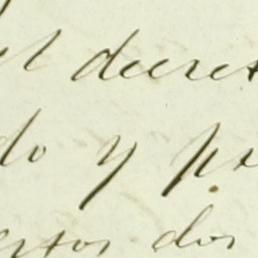 el decret
do y pr
estos dos